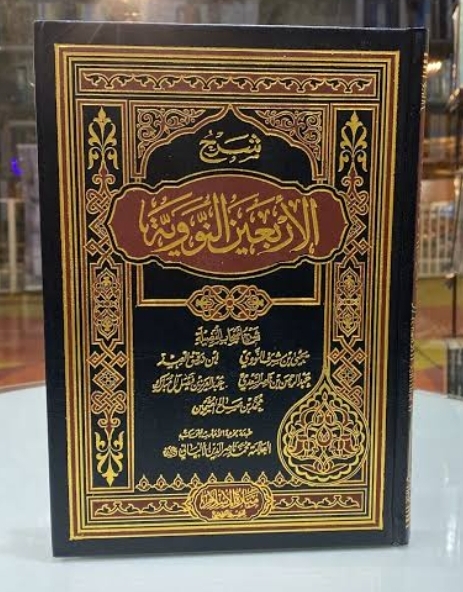 شرح
الأربعين النووية
شرح أصحاب الفضيلة
يحيى بن شرف النووي ابن دقيق العيد
عبد الرحمن بن ناصر السعدي عبد العزيز بن فيصل المبارك
محمد بن صالح العثيمين
العلامة محمد ناصر الدين الألباني